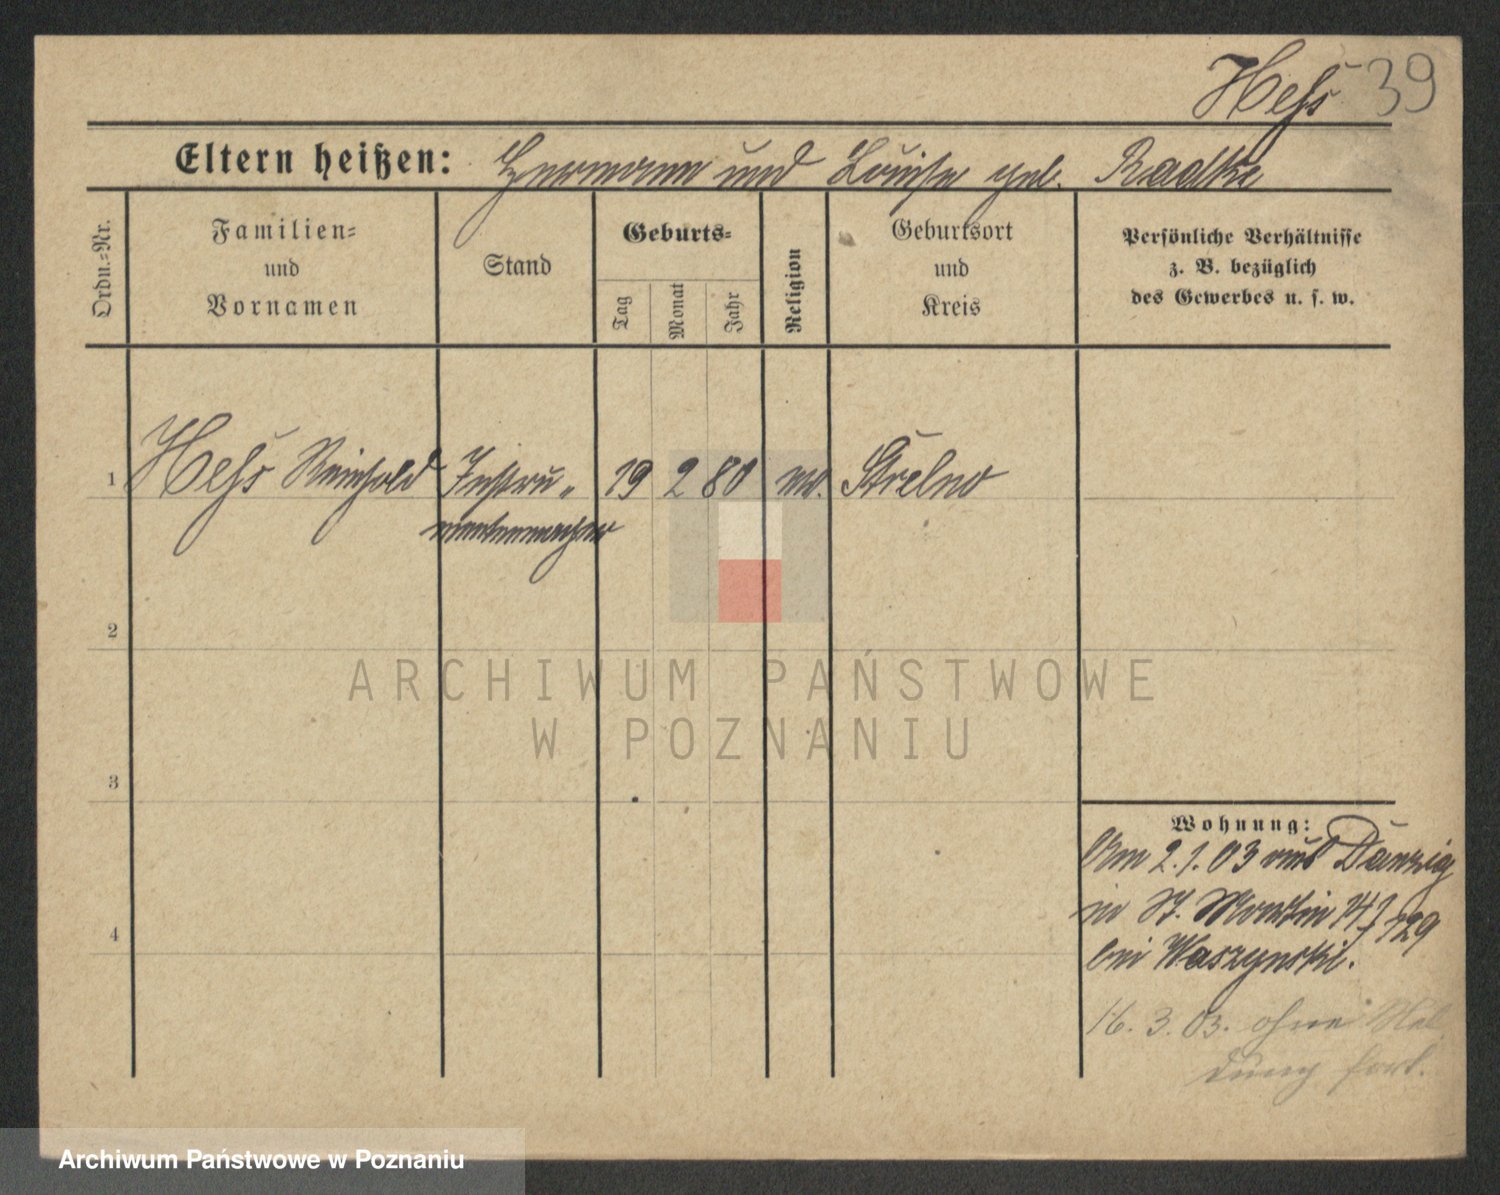 Heſs 39
Eltern heißen: Hermann und Louise geb. Radtke
Ordn.-Nr.
Familien-
und
Vornamen
Stand
Geburts-
Tag
Monat
Jahr
Religion
Geburtsort
und
Kreis
Persönliche Verhältnisse
z. B. bezüglich
des Gewerbes u. s. w.
1 Heſs Reinhold Instru- 19 2 80 ev. Strelno
mentenmacher
2
ARCHIWUM PAŃSTWOWE
W POZNANIU
3
Wohnung:
Am 2.1.03 aus Danzig
in St. Martin
129
4
bei Waszynski.
16. 3. 03. ohne Mel
dung fort.
Archiwum Państwowe w Poznaniu